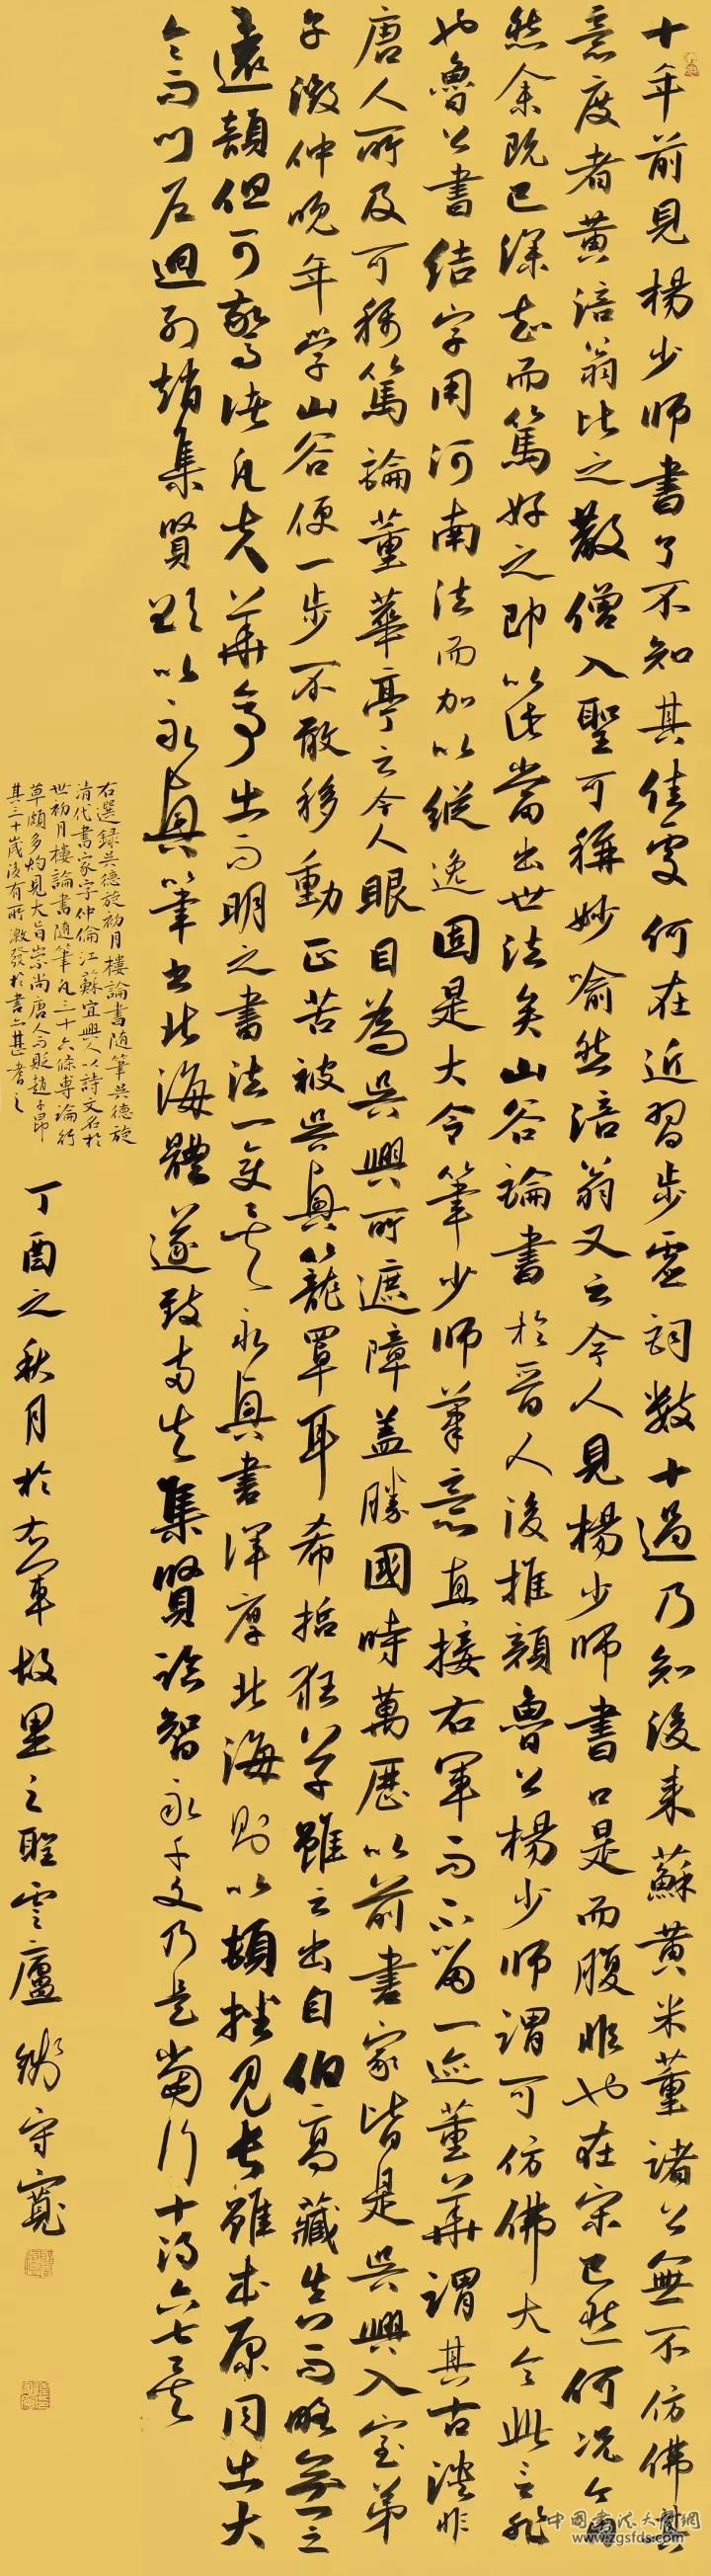 十年前見楊少师書了不知其佳处何在近習步虚詞数十過乃知後来蘇黄米董諸公無不仿佛其
意度者黄涪翁比之散僧入聖可稱妙喻然涪翁又云今人見楊少师書口是而腹非也在宋已然何况今
然余既已深知而篤好之即以此當出世法矣山谷論書於晋人後推顔魯公楊少师謂可仿佛大令此言非
也魯公書结字用河南法而加以縱逸固是大令筆少师筆意直接右軍而不留一迹董華謂其古淡非
唐人所及可稱篤論董華亭云今人眼目為吴興所遮障盖勝國時萬歷以前書家皆是吴興入室弟
子徵仲晚年学山谷便一步不敢移動正苦被吴興籠罩耳希哲狂草雖云出自伯高藏真而略無一
遠韻但可驚諸凡夫華亭出而明之書法一变矣永興書渾厚北海則以頓挫見長雖本原同出大
令而门户迥別趙集賢欲以永興筆書北海體遂致两失集賢臨智永千文乃是當行十得六七矣
右選録吴德旋初月樓論書随筆吴德旋
清代書家字仲倫江蘇宜興人以詩文名於
世初月樓論書随筆凡三十六條專論行
草頗多灼見大旨崇尚唐人而貶趙子昂
其三十歲後有所激發於書亦甚耆之
丁酉之秋月於右軍故里之聖雲廬 守寬
中国书法大厦網
www.zgsfds.com